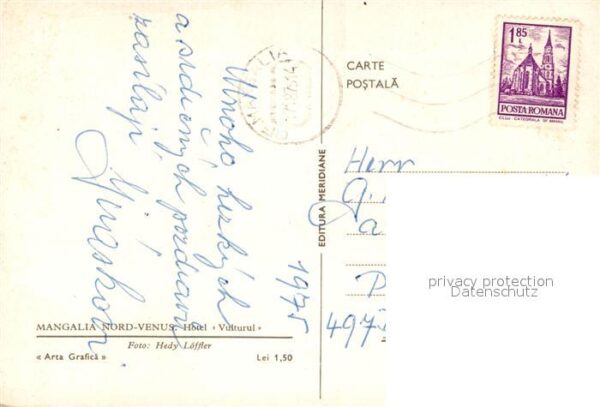 Mnoho hezkých
a srdečných pozdravů
zasílají
Jiráskovi
1975
MANGALIA NORD-VENUS. Hotel «Vulturul»
Foto: Hedy Löffler
« Arta Grafică »
Lei 1,50
EDITURA MERIDIANE
CARTE
POȘTALĂ
MANGALIA
1,85
L
POSTA ROMANA
CLUJ CATEDRALA SF MIHAIL
Herr
G.
a
P
497
privacy protection
Datenschutz